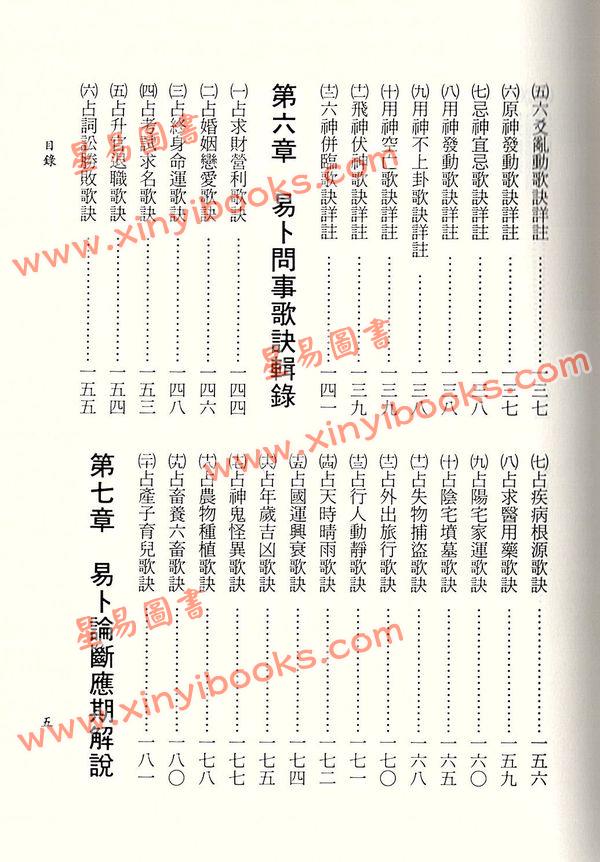 ㈤六爻亂動歌訣詳註…………一三七
㈥原神發動歌訣詳註…………一三七
㈦忌神宜忌歌訣詳註…………一三八
㈧用神發動歌訣詳註…………一三八
㈨用神不上卦歌訣詳註…………一三八
㈩用神空亡歌訣詳註…………一三九
(十一)飛神伏神歌訣詳註…………一三九
(十二)六神併臨歌訣詳註…………一四一
第六章 易卜問事歌訣輯錄
㈠占求財營利歌訣…………一四四
㈡占婚姻戀愛歌訣…………一四六
㈢占終身命運歌訣…………一四八
㈣占考試求名歌訣…………一五三
㈤占升官退職歌訣…………一五四
㈥占詞訟勝敗歌訣…………一五五
㈦占疾病根源歌訣…………一五六
㈧占求醫用藥歌訣…………一五九
㈨占陽宅家運歌訣…………一六〇
㈩占陰宅墳墓歌訣…………一六五
(十一)占失物捕盜歌訣…………一六八
(十二)占外出旅行歌訣…………一七〇
(十三)占行人動靜歌訣…………一七一
(十四)占天時晴雨歌訣…………一七二
(十五)占國運興衰歌訣…………一七四
(十六)占年歲吉凶歌訣…………一七五
(十七)占神鬼怪異歌訣…………一七七
(十八)占農物種植歌訣…………一七八
(十九)占畜養六畜歌訣…………一八〇
(二十)占產子育兒歌訣…………一八一
第七章 易卜論斷應期解說
目錄
五
星易圖書
www.xinyibooks.com
星易圖書
www.xinyibooks.com
星易圖書
www.xinyibooks.com